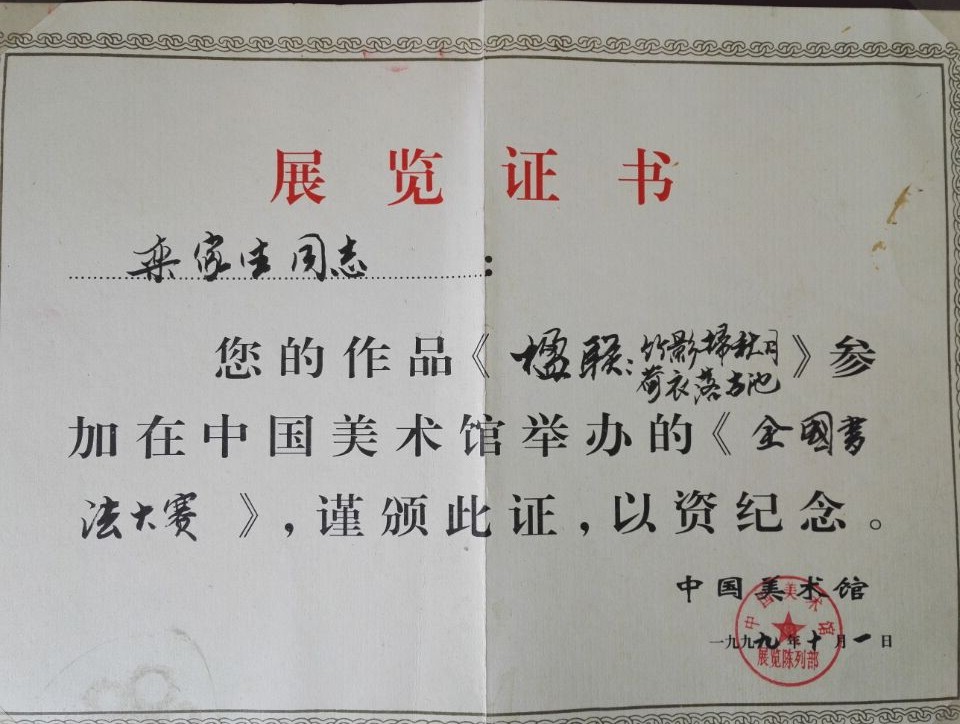 展览证书
栾家生同志：
您的作品《楹联：竹影掃秋月
荷衣落古池》参
加在中国美术馆举办的《全國書
法大赛》，谨颁此证，以资纪念。
中国美术馆
一九九九年十月一日
中国美术馆
展览陈列部